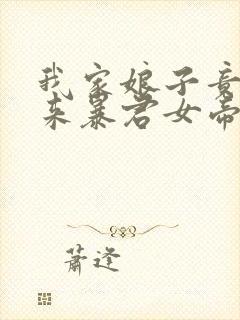 我家娘子竟
来暴君女帝
萧逆